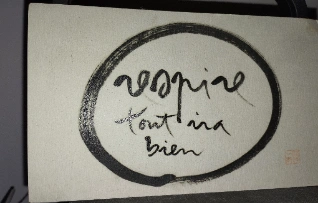 respire
tout ira
bien